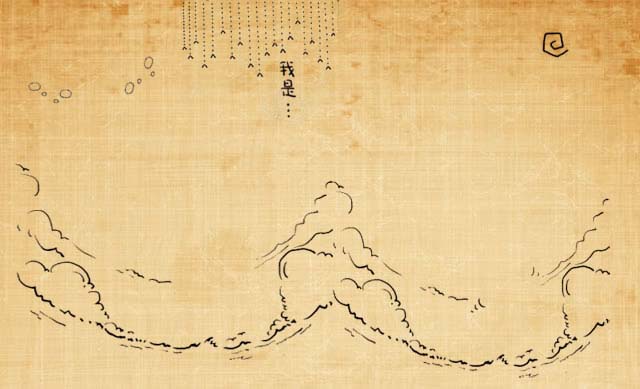 我是…